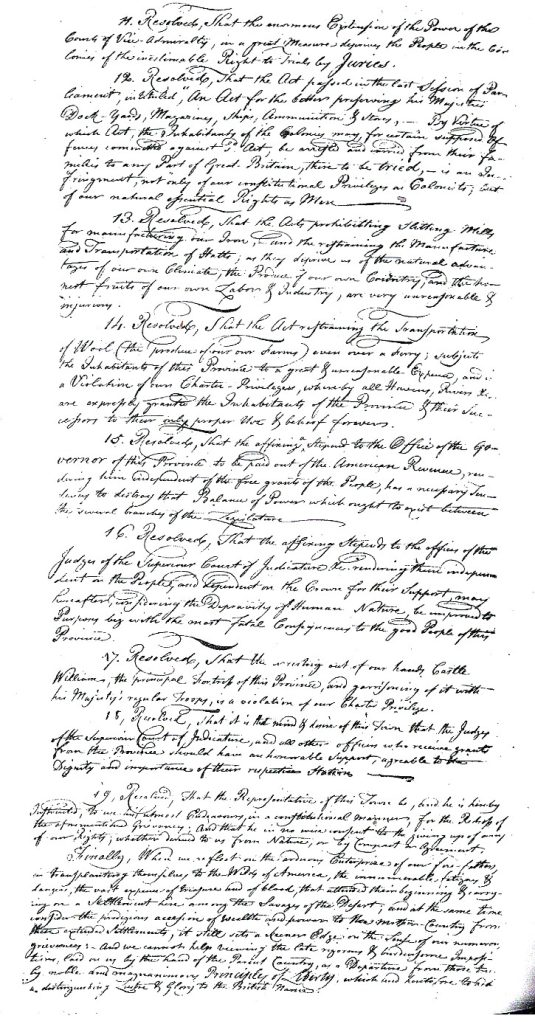 11. Resolved, That the enormous Extension of the Power of the
Courts of Vice-Admiralty, in a great Measure deprives the People in the Co-
lonies of the inestimable Right to Trials by Juries.
12. Resolved, That the Act passed in the last Session of Par-
liament, intituled, "An Act for the better preserving his Majesty's
Dock-Yards, Magazines, Ships, Ammunition & Stores, — By Virtue of
which Act, the Inhabitants of the Colonies may, for certain supposed Of-
fences committed against sd. Act, be arrested and carried from their fa-
milies to any Part of Great Britain, there to be tried, — is an In-
fringment, not only of our constitutional Privileges as Colonists, but
of our natural essential Rights as Men
13. Resolved, That the Acts prohibitting Slitting Mills
for manufacturing our Iron, — and the restraining the Manufacture
and Transportation of Hatts; as they deprive us of the natural advan-
tages of our own Climate, the Produce of our own Country, and the ho-
nest fruits of our own Labor & Industry, are very unreasonable &
injurious.
14. Resolved, That the Act restraining the Transportation
of Wool (the produce of our own Farms) even over a Ferry; subjects
the Inhabitants of this Province to a great & unreasonable Expence, and is
a Violation of our Charter-Privileges, whereby all Havens, Rivers &c.
are expressly granted the Inhabitants of the Province & their Suc-
cessors to their only proper Use & behoof forever.
15. Resolved, That the affixing a Stipend to the Office of the Go-
vernor of this Province to be paid out of the American Revenue, ren-
dering him independent of the free grants of the People, has a necessary Ten-
dency to destroy that Balance of Power which ought to exist between
the several branches of the Legislature
16. Resolved, That the affixing Stipends to the offices of the
Judges of the Superiour Court of Judicature &c. rendering them indepen-
dent on the People, and dependent on the Crown for their Support, may
hereafter, considering the Depravity of Human Nature, be improved to
Purposes big with the most fatal Consequences to the good People of this
Province
17. Resolved, That the wresting out of our hands Castle
William, the principal Fortress of this Province, and garrisoning of it with
his Majesty's regular Troops, is a violation of our Charter Privilege.
18, Resolved, That it is the mind & desire of this Town that the Judges
of the Superiour Court of Judicature, and all other officers who receive grants
from the Province should have an honorable Support, agreable to the
Dignity and importance of their respective Station
19, Resolved, That the Representative of this Town be, and he is hereby
Instructed to use his utmost Endeavours, in a constitutional manner, for the Redress of
the aforementioned Grievances; And that he in no wise consent to the giving up of any
of our Rights; whether derived to us from Nature, or by Compact or Agreement.
Finally, When we reflect on the arduous Enterprise of our fore-fathers,
in transplanting themselves to the Wilds of America, the innumerable fatigues, &
dangers, the vast expence of treasure and of blood, that attended their beginning & carry-
ing on a Settlement here among the Savages of the Desert; and at the same time
consider the prodigious accession of wealth and power to the mother-Country from
these extended Settlements, it still sets a keener Edge on the sense of our numerous
grievances: - And we cannot help viewing the late rigorous & burdensome Imposi-
tions, laid on us by the hand of the Parent Country, as a Departure from those tru-
ly noble and magnanimous Principles of Liberty, which used heretofore to add
a distinguishing Lustre & Glory to the British